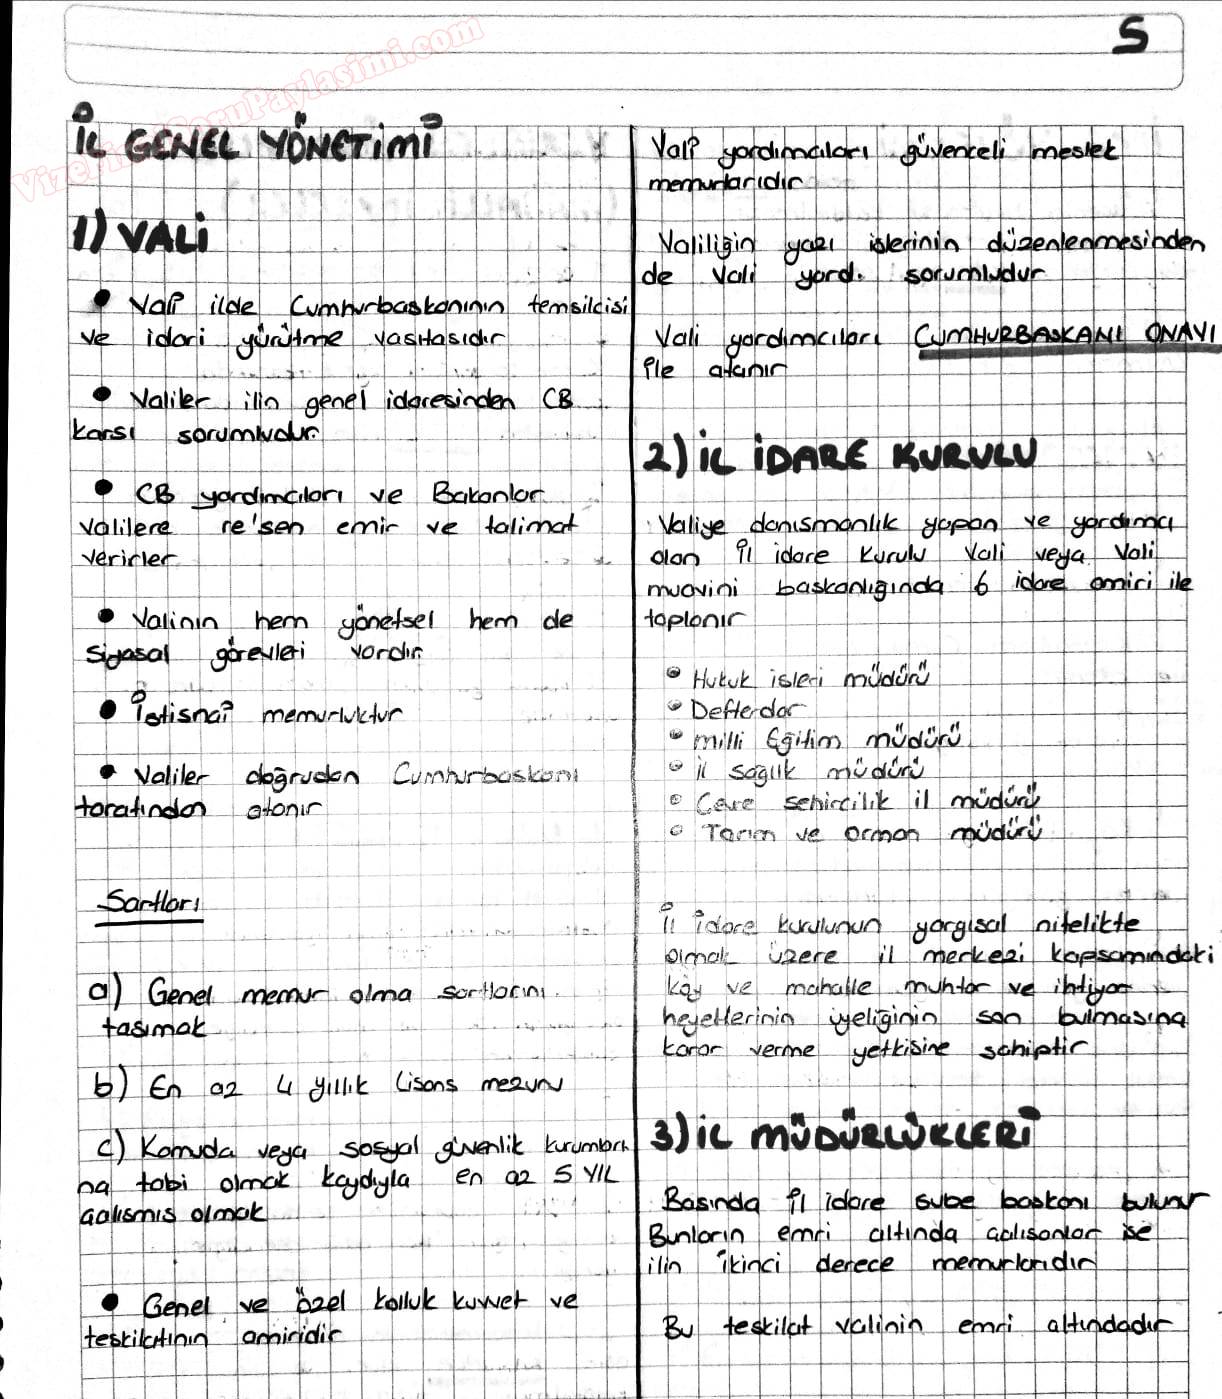 5
VizeFinalSoruPaylasimi.com
İL GENEL YÖNETİMİ
1) VALİ
• Vali ilde Cumhurbaskanının temsilcisi
ve idari yürütme vasıtasıdır
• Valiler ilin genel idaresinden CB
karsı sorumludur.
• CB yardımcıları ve Bakanlar
valilere re'sen emir ve talimat
verirler
• Valinin hem yönetsel hem de
siyasal görevleri vardır
• İstisnai memurluktur
• Valiler doğrudan Cumhurbaskanı
tarafından atanır
Sartları
a) Genel memur olma sartlarını
tasımak
b) En az 4 yıllık Lisans mezunu
c) Kamuda veya sosyal güvenlik kurumları
na tabi olmak kaydıyla en az 5 YIL
calısmıs olmak
• Genel ve özel kolluk kuvvet ve
teskilatının amiridir
Vali yardımcıları güvenceli meslek
memurlarıdır
Valiliğin yazı islerinin düzenlenmesinden
de Vali yard. sorumludur
Vali yardımcıları CUMHURBASKANI ONAYI
ile atanır
2) İL İDARE KURULU
Valiye danısmanlık yapan ve yardımcı
olan İl idare Kurulu Vali veya Vali
muavini baskanlığında 6 idare amiri ile
toplanır
• Hukuk isleri müdürü
• Defterdar
• milli Eğitim müdürü
• il sağlık müdürü
• Cevre sehircilik il müdürü
• Tarım ve orman müdürü
İl idare kurulunun yargısal nitelikte
olmak üzere il merkezi kapsamındaki
köy ve mahalle muhtar ve ihtiyar
heyetlerinin üyeliğinin son bulmasına
karar verme yetkisine sahiptir
3) İL MÜDÜRLÜKLERİ
Basında il idare sube baskanı bulunur
Bunların emri altında calısanlar ise
ilin ikinci derece memurlarıdır
Bu teskilat valinin emri altındadır